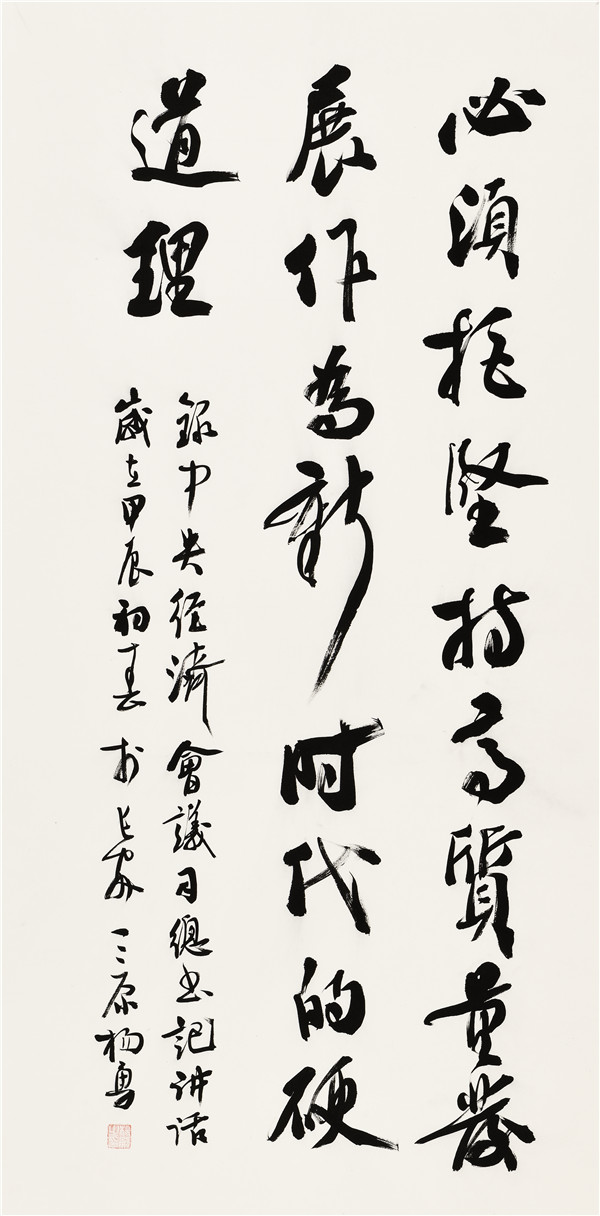 必須把堅持高質量發
展作為新时代的硬
道理
錄中央經濟會議習總书記讲话
歲在甲辰初春於长安三原杨勇